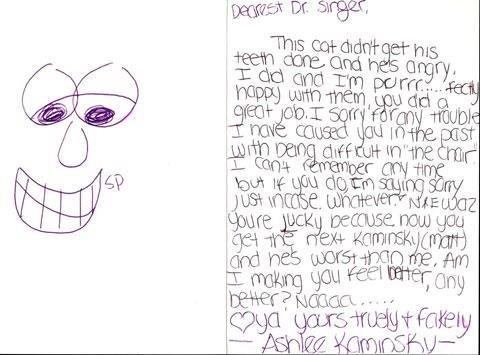 SP
Dearest Dr. Singer,
This cat didn't get his
teeth done and he's angry.
I did and I'm purrr.....fectly
happy with them, you did a
great job. I sorry for any trouble
I have caused you in the past
with being difficult in "the chair"
I can't remember any time
but if you do I'm saying sorry
just incase. Whatever. N*E WAZ
youre lucky because now you
get the next Kaminsky (matt)
and he's worst than me. Am
I making you feel better, any
better? Naaaa.....
♡ya yours truely + fakely
— Ashlee Kaminsky —